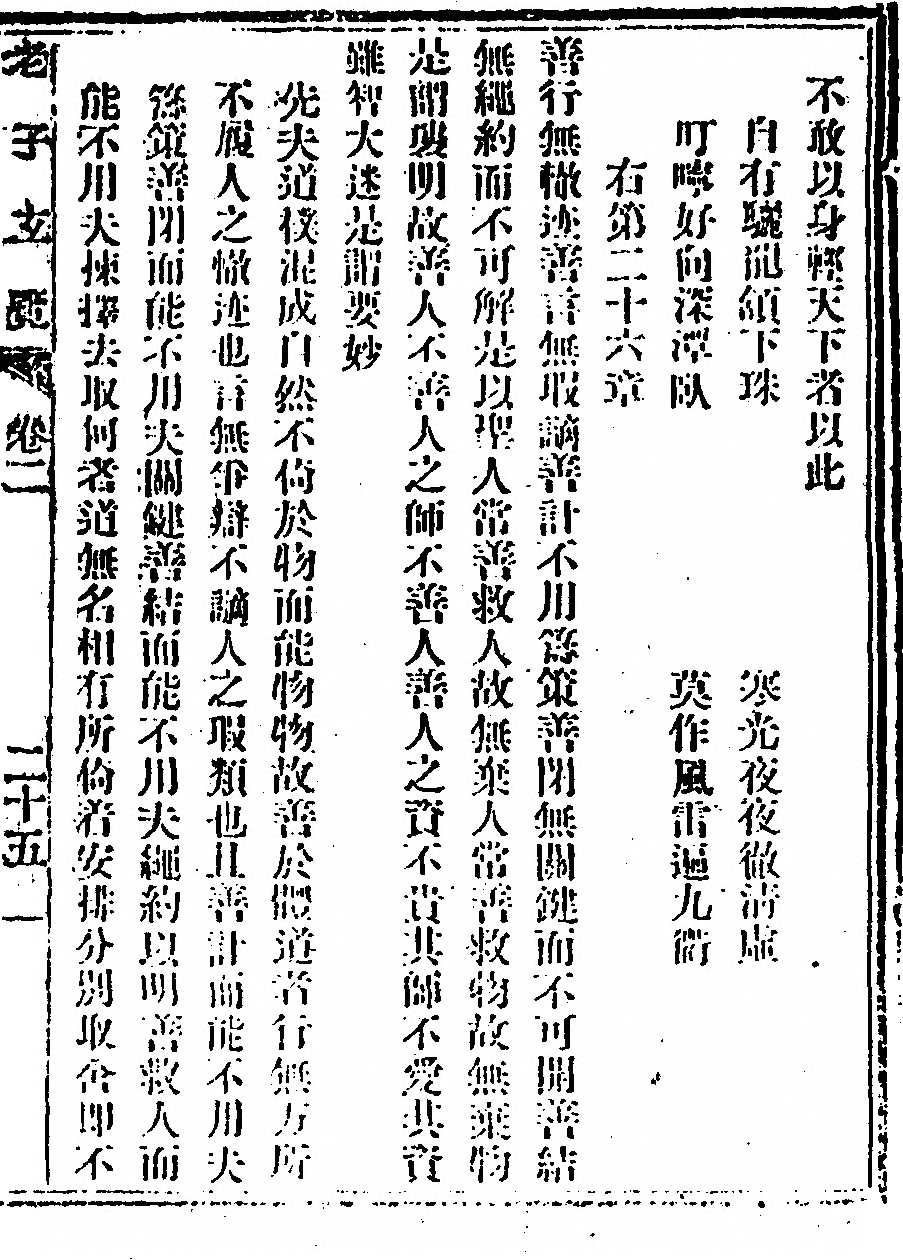 不敢以身輕天下者以此
自有驪龍頷下珠　寒光夜夜徹清虛
叮嚀好向深潭臥　莫作風雷遍九衢
右第二十六章
善行無轍迹善言無瑕謫善計不用筹策善閉無關鍵而不可開善結
無繩約而不可解是以聖人常善救人故無棄人常善救物故無棄物
是謂襲明故善人不善人之師不善人善人之資不貴其師不愛其資
雖智大迷是謂要妙
先夫道樸混成自然不倚於物而能物物故善於體道者行無方所
不履人之轍迹也言無爭辯不謫人之瑕類也且善計而能不用夫
筹策善閉而能不用夫關鍵善結而能不用夫繩約以明善救人而
能不用夫揀擇去取何者道無名相有所倚着安排分別取舍即不
老子玄覽　卷二　二十五